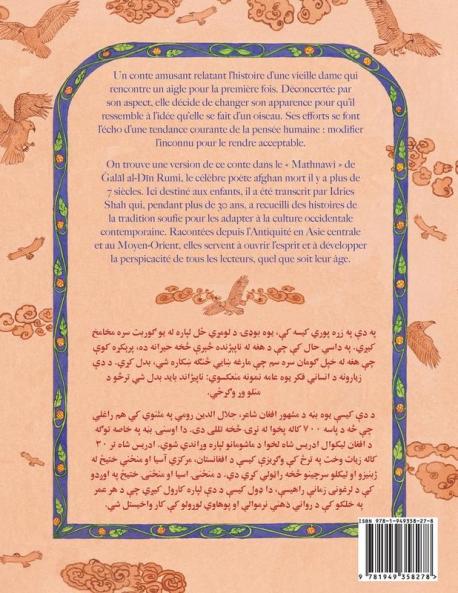 Un conte amusant relatant l'histoire d'une vieille dame qui
rencontre un aigle pour la première fois. Déconcertée par
son aspect, elle décide de changer son apparence pour qu'il
ressemble à l'idée qu'elle se fait d'un oiseau. Ses efforts se font
l'écho d'une tendance courante de la pensée humaine : modifier
l'inconnu pour le rendre acceptable.
On trouve une version de ce conte dans le « Mathnawi » de
Galāl al-Dīn Rumi, le célèbre poète afghan mort il y a plus de
7 siècles. Ici destiné aux enfants, il a été transcrit par Idries
Shah qui, pendant plus de 30 ans, a recueilli des histoires de
la tradition soufie pour les adapter à la culture occidentale
contemporaine. Racontées depuis l'Antiquité en Asie centrale
et au Moyen-Orient, elles servent à ouvrir l'esprit et à développer
la perspicacité de tous les lecteurs, quel que soit leur âge.
په دې په زړه پورې کیسه کې، یوه بوډۍ د لومړي ځل لپاره له یو ګوربت سره مخامخ
کیږي. په داسې حال کې چې د هغه له ناپېژنده څېرې څخه حیرانه ده، پرېکړه کوي
چې هغه له خپل ګومان سره سم چې مارغه ښايي څنګه ښکاره شي، بدل کړي. د دې
زیارونه د انساني فکر یوه عامه نمونه منعکسوي: ناپېژاند باید بدل شي ترڅو د
منلو وړ وګرځي.
د دې کیسې یوه بڼه د مشهور افغان شاعر، جلال الدین رومي په مثنوي کې هم راغلې
چې څه د پاسه ۷۰۰ کاله پخوا له نړۍ څخه تللی دی. دا اوسنۍ بڼه په خاصه توګه
د افغان لیکوال ادریس شاه لخوا د ماشومانو لپاره وړاندې شوې. ادریس شاه تر ۳۰
کاله زیات وخت په ترڅ کې وګړیزې کیسې د افغانستان، مرکزي آسیا او منځني ختیځ له
ژبنیزو او لیکلو سرچینو څخه راټولې کړې دي. د منځنۍ اسیا او منځني ختیځ په اوږدو
کې د لرغونې زمانې راهیسې، دا ډول کیسې د دې لپاره کارول کیږي چې د هر عمر
په خلکو کې د رواني ذهني نرموالي او پوهاوي لوړولو کې کار واخیستل شي.
ISBN 978-1-949358-27-8
9 781949 358278